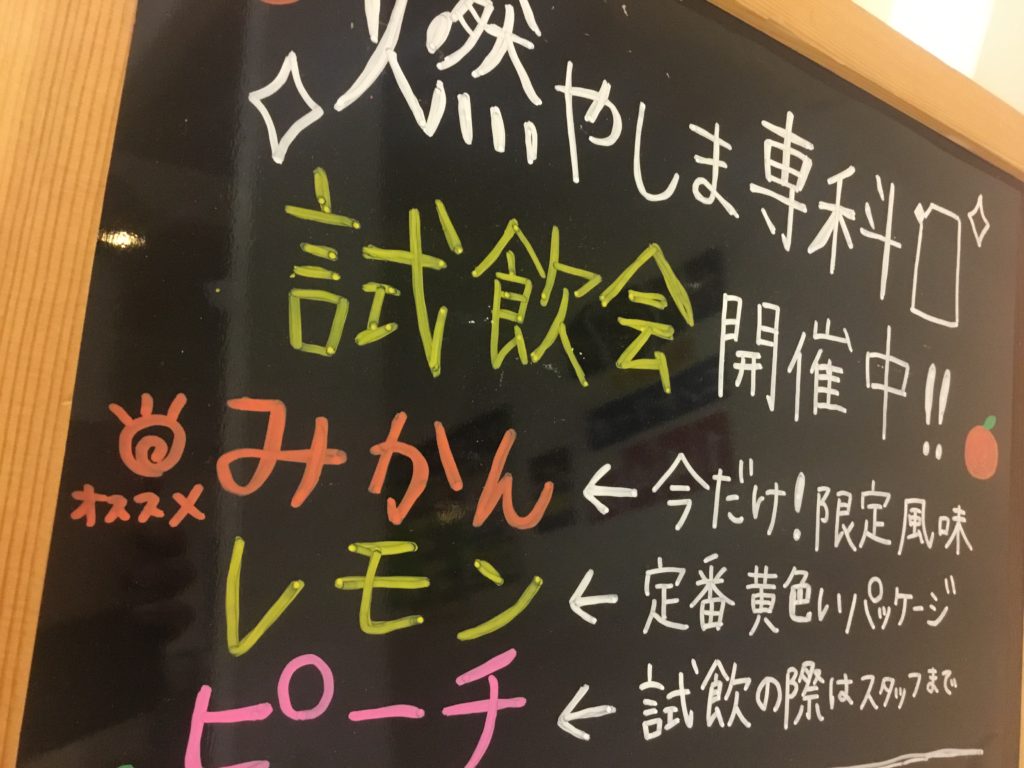 燃やしま専科
試飲会 開催中!!
オススメ みかん ← 今だけ!限定風味
レモン ← 定番黄色いパッケージ
ピーチ ← 試飲の際はスタッフまで